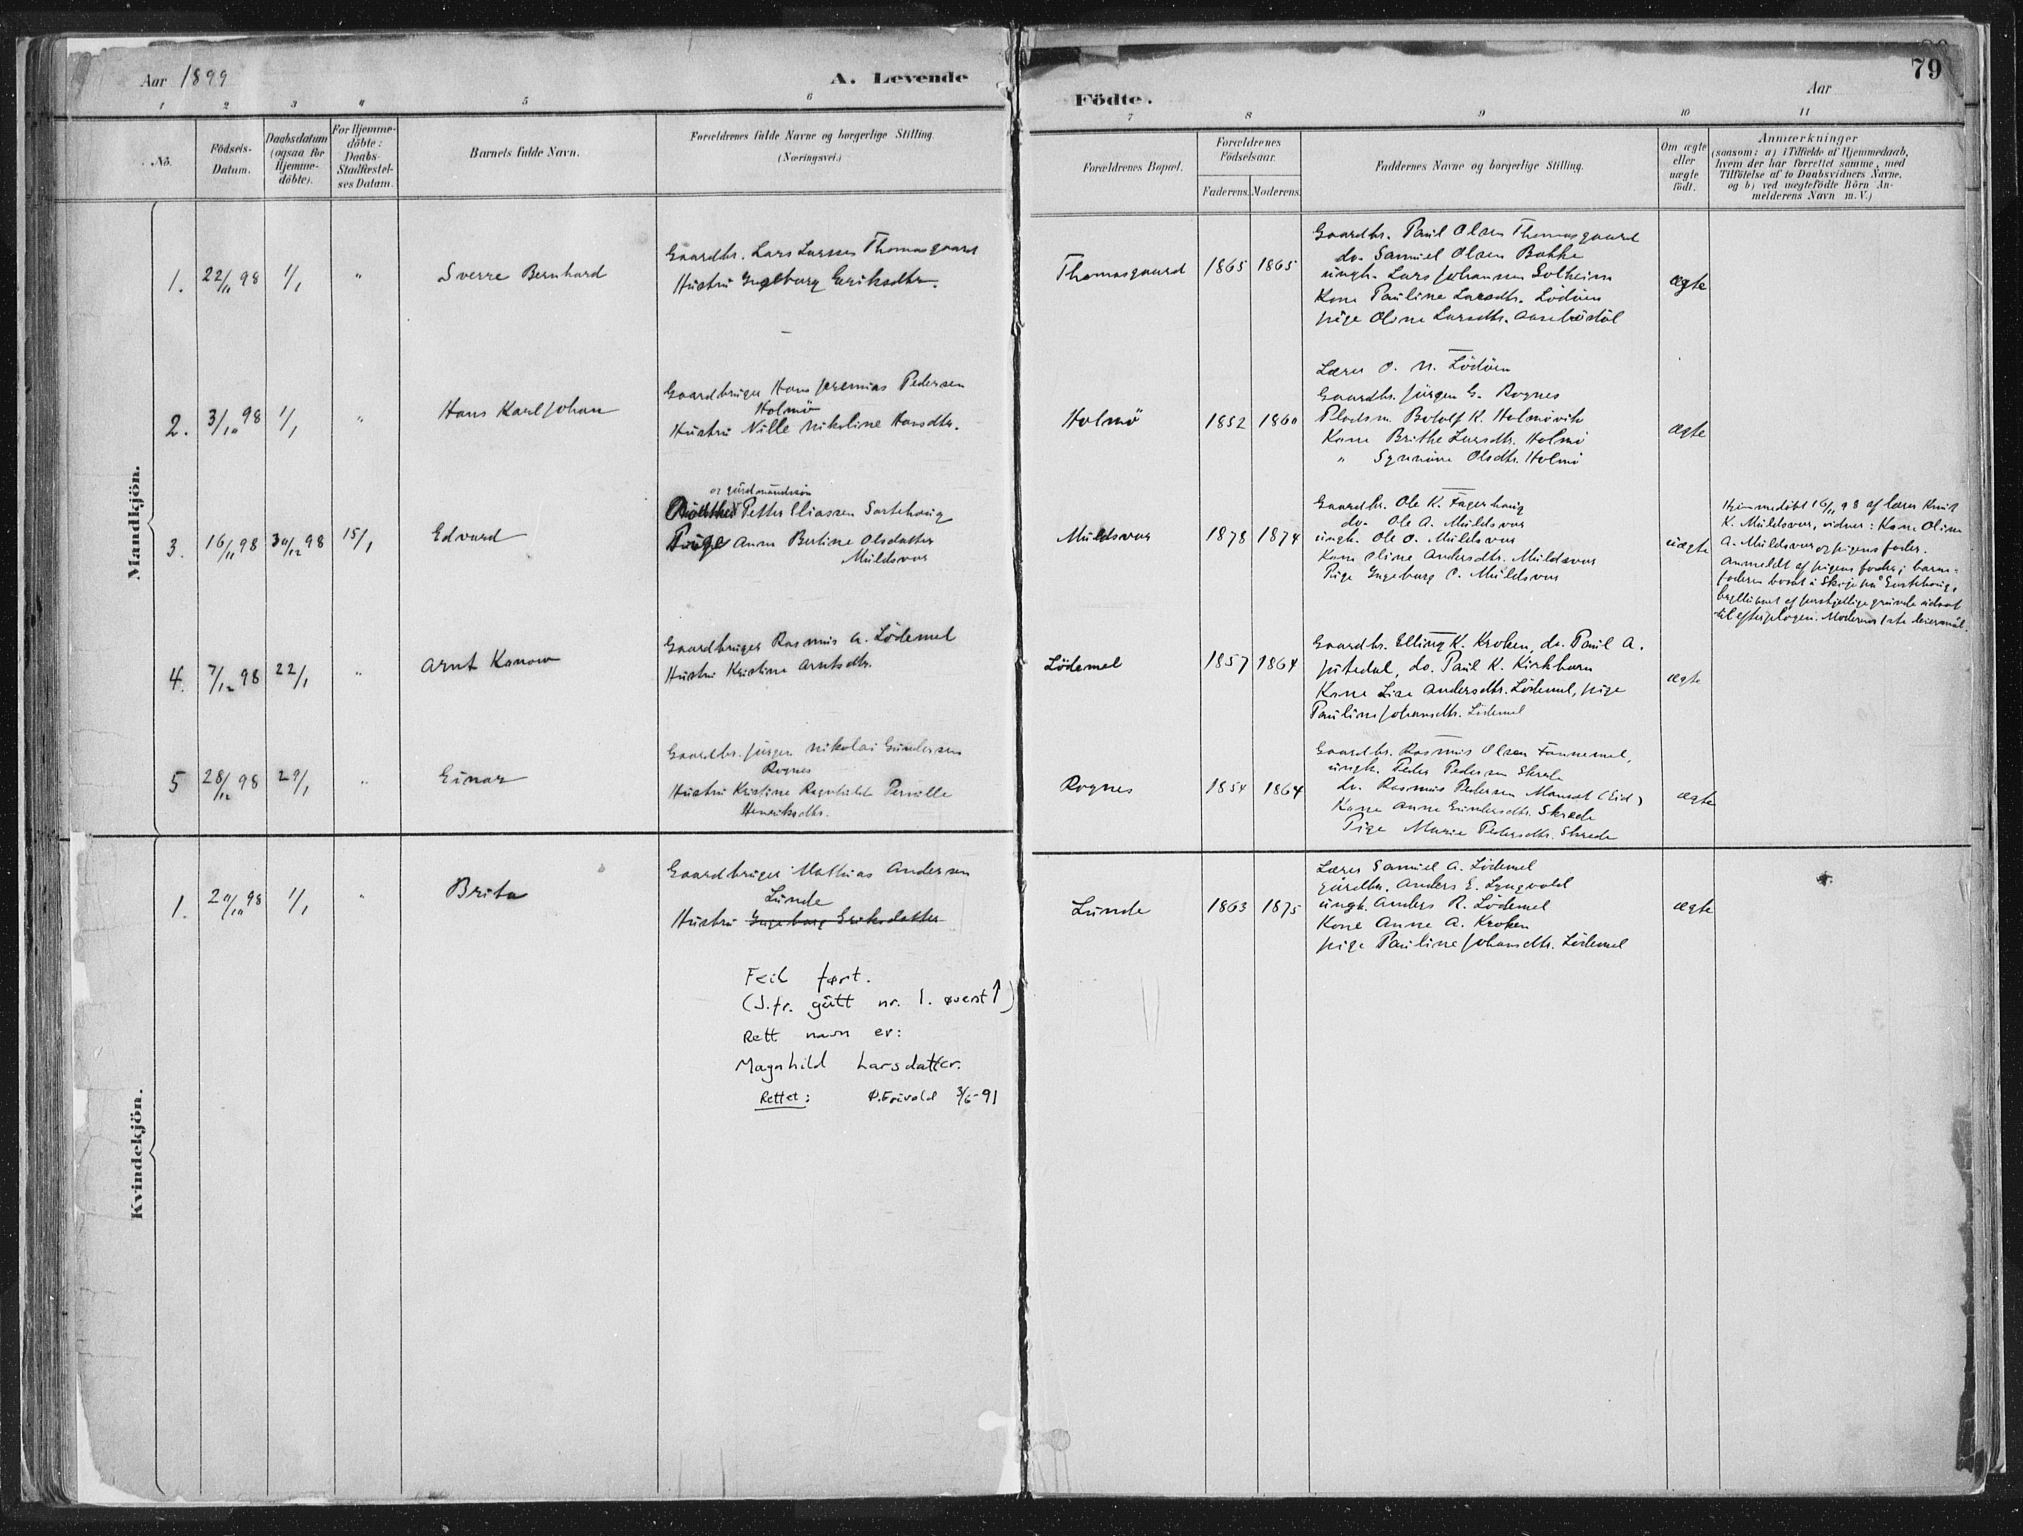 Aar 1899
A. Levende
1 2 3 4 5 6
No.
Födsels-
Datum.
Daabsdatum
(ogsaa for
Hjemme-
döbte).
For Hjemme-
döbte:
Daabs-
Stadfæstel-
ses Datum.
Barnets fulde Navn.
Forældrenes fulde Navne og borgerlige Stilling.
(Næringsvei.)
Mandkjön.
1. 22/11 98 1/1 " Sverre Bernhard
Gaardbr. Lars Larsen Thomasgaard
Hustru Ingeborg Eriksdtr.
2. 3/10 98 1/1 " Hans Karl Johan
Gaardbruger Hans Jeremias Pedersen
Holmö
Hustru Nille Nikoline Hansdtr.
3. 16/11 98 30/12 98 15/1 Edvard
og gårdmandssøn
Petter Eliassen Sortehoug
Pige Anna Berline Olsdatter
Muldsvor
4. 7/12 98 22/1 " Arnt Kanow
Gaardbruger Rasmus A. Lödemel
Hustru Kristine Arntsdtr.
5 28/12 98 29/1 " Einar
Gaardbr. Jürgen Nikolai Gundersen
Rognes
Hustru Kristine Ragnhilde Pernille
Henriksdtr.
Kvindekjön.
1. 20/11 98 1/1 " Brita
Gaardbruger Mathias Andersen
Lunde
Hustru Ingeborg Eriksdatter
Feil ført.
(J.fr. gutt nr. 1. øverst ↑)
Rett navn er:
Magnhild Larsdatter.
Rettet: 3/6-91
79
Aar
Födte.
7 8 9 10 11
Forældrenes Bopæl.
Forældrenes
Födselsaar.
Faderens. Moderens.
Faddernes Navne og borgerlige Stilling.
Om ægte
eller
uægte
födt.
Anmærkninger
(saasom: a) i Tilfælde af Hjemmedaab,
hvem der har forrettet samme, med
Tilföielse af to Daabsvidners Navne,
og b) ved uægtefödte Börn An-
melderens Navn m. V.)
Thomasgaard 1865 1865 ægte
Gaardbr. Paul Olsen Thomasgaard
do. Samuel Olsen Bakke
ungk. Lars Johannsen Solheim
Kone Pauline Larsdtr. Lödöen
pige Oline Larsdtr. Aasebøstöl
Holmö 1852 1860 ægte
Lærer O. N. Lödöen
Gaardbr. Jürgen G. Rognes
Pladsm. Botolf K. Holmövik
Kone Brithe Larsdtr. Holmö
" Synnöve Olsdtr. Holmö
Muldsvor 1878 1874 uægte
Gaardbr. Ole K. Fagerhaug
do. Ole A. Muldsvor
ungk. Ole O. Muldsvor
Kone Oline Andersdtr. Muldsvor
Pige Ingeborg O. Muldsvor
Hjemmedöbt 16/11 98 af lærer Knut
K. Muldsvor, vidner: Kone Oline
A. Muldsvor og pigens fader.
Anmeldt af pigens fader; barne-
faderen bosat i Skije på Sortehoug,
til efterplogen. Moderens 1ste leiermål.
Lödemel 1857 1864 ægte
Gaardbr. Elling K. Kroken, do. Paul A.
Jutedal, do. Paul K. Kirkhorn
Kone Lise Andersdtr. Lödemel, pige
Pauline Johansdtr. Lödemel
Rognes 1854 1864 ægte
Gaardbr. Rasmus Olsen Fannemel,
ungk. Peder Pedersen Skrede
do. Rasmus Pedersen Maurset (Eid)
Kone Anne Gundersdtr. Skrede
Pige Marie Pedersdtr. Skrede
Lunde 1863 1875 ægte
Lærer Samuel A. Lödemel
gårdbr. Anders E. Lyngvold
ungk. Anders R. Lödemel
Kone Anne A. Kroken
pige Pauline Johansdtr. Lödemel